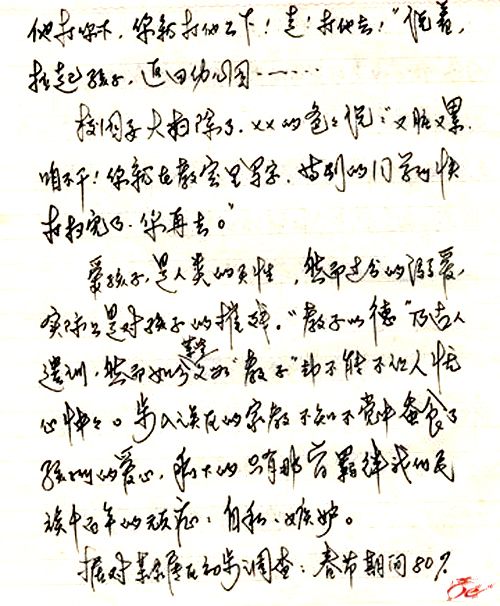 他打你一下，你就打他三下！走！打他去！”说着，
拉起孩子，返回幼儿园……
校园子大扫除了，××的爸爸说：“又脏又累，
咱不干！你就在教室里写字，等别的同学们快
打扫完了，你再去。”
爱孩子，是人类的天性，然而过分的溺爱，
实际上是对孩子的摧残。“教子以德”乃古人
遗训，然而如今某些父母“教子”却不能不让人忧
心忡忡。步入误区的家教不知不觉中蚕食了
孩子们的爱心，剩下的只有那羁绊我们民
族千百年的顽症：自私、嫉妒。
据对某家属区初步调查：春节期间80%